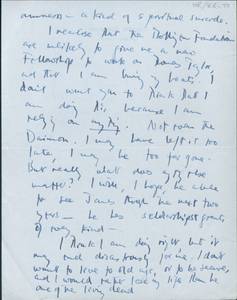 numerous – a kind of spiritual suicide.
I realise that the Bollingen Foundation
are unlikely to give me a new
Fellowship to work on Thomas Taylor
and that I am being
don't want you to think that I
am doing this because I am
relying on my
Daimon. I may have left it too
late, I may be too far gone.
But really what does
matter? I wish, I hope, to be able
to see James through the next two
years – he has scholarships & grants
of every kind –
I think I am doing right but it
may end disastrously for me. I don't
want to live to old age, or to be secure,
and I would rather lose my life than be
one of the living dead